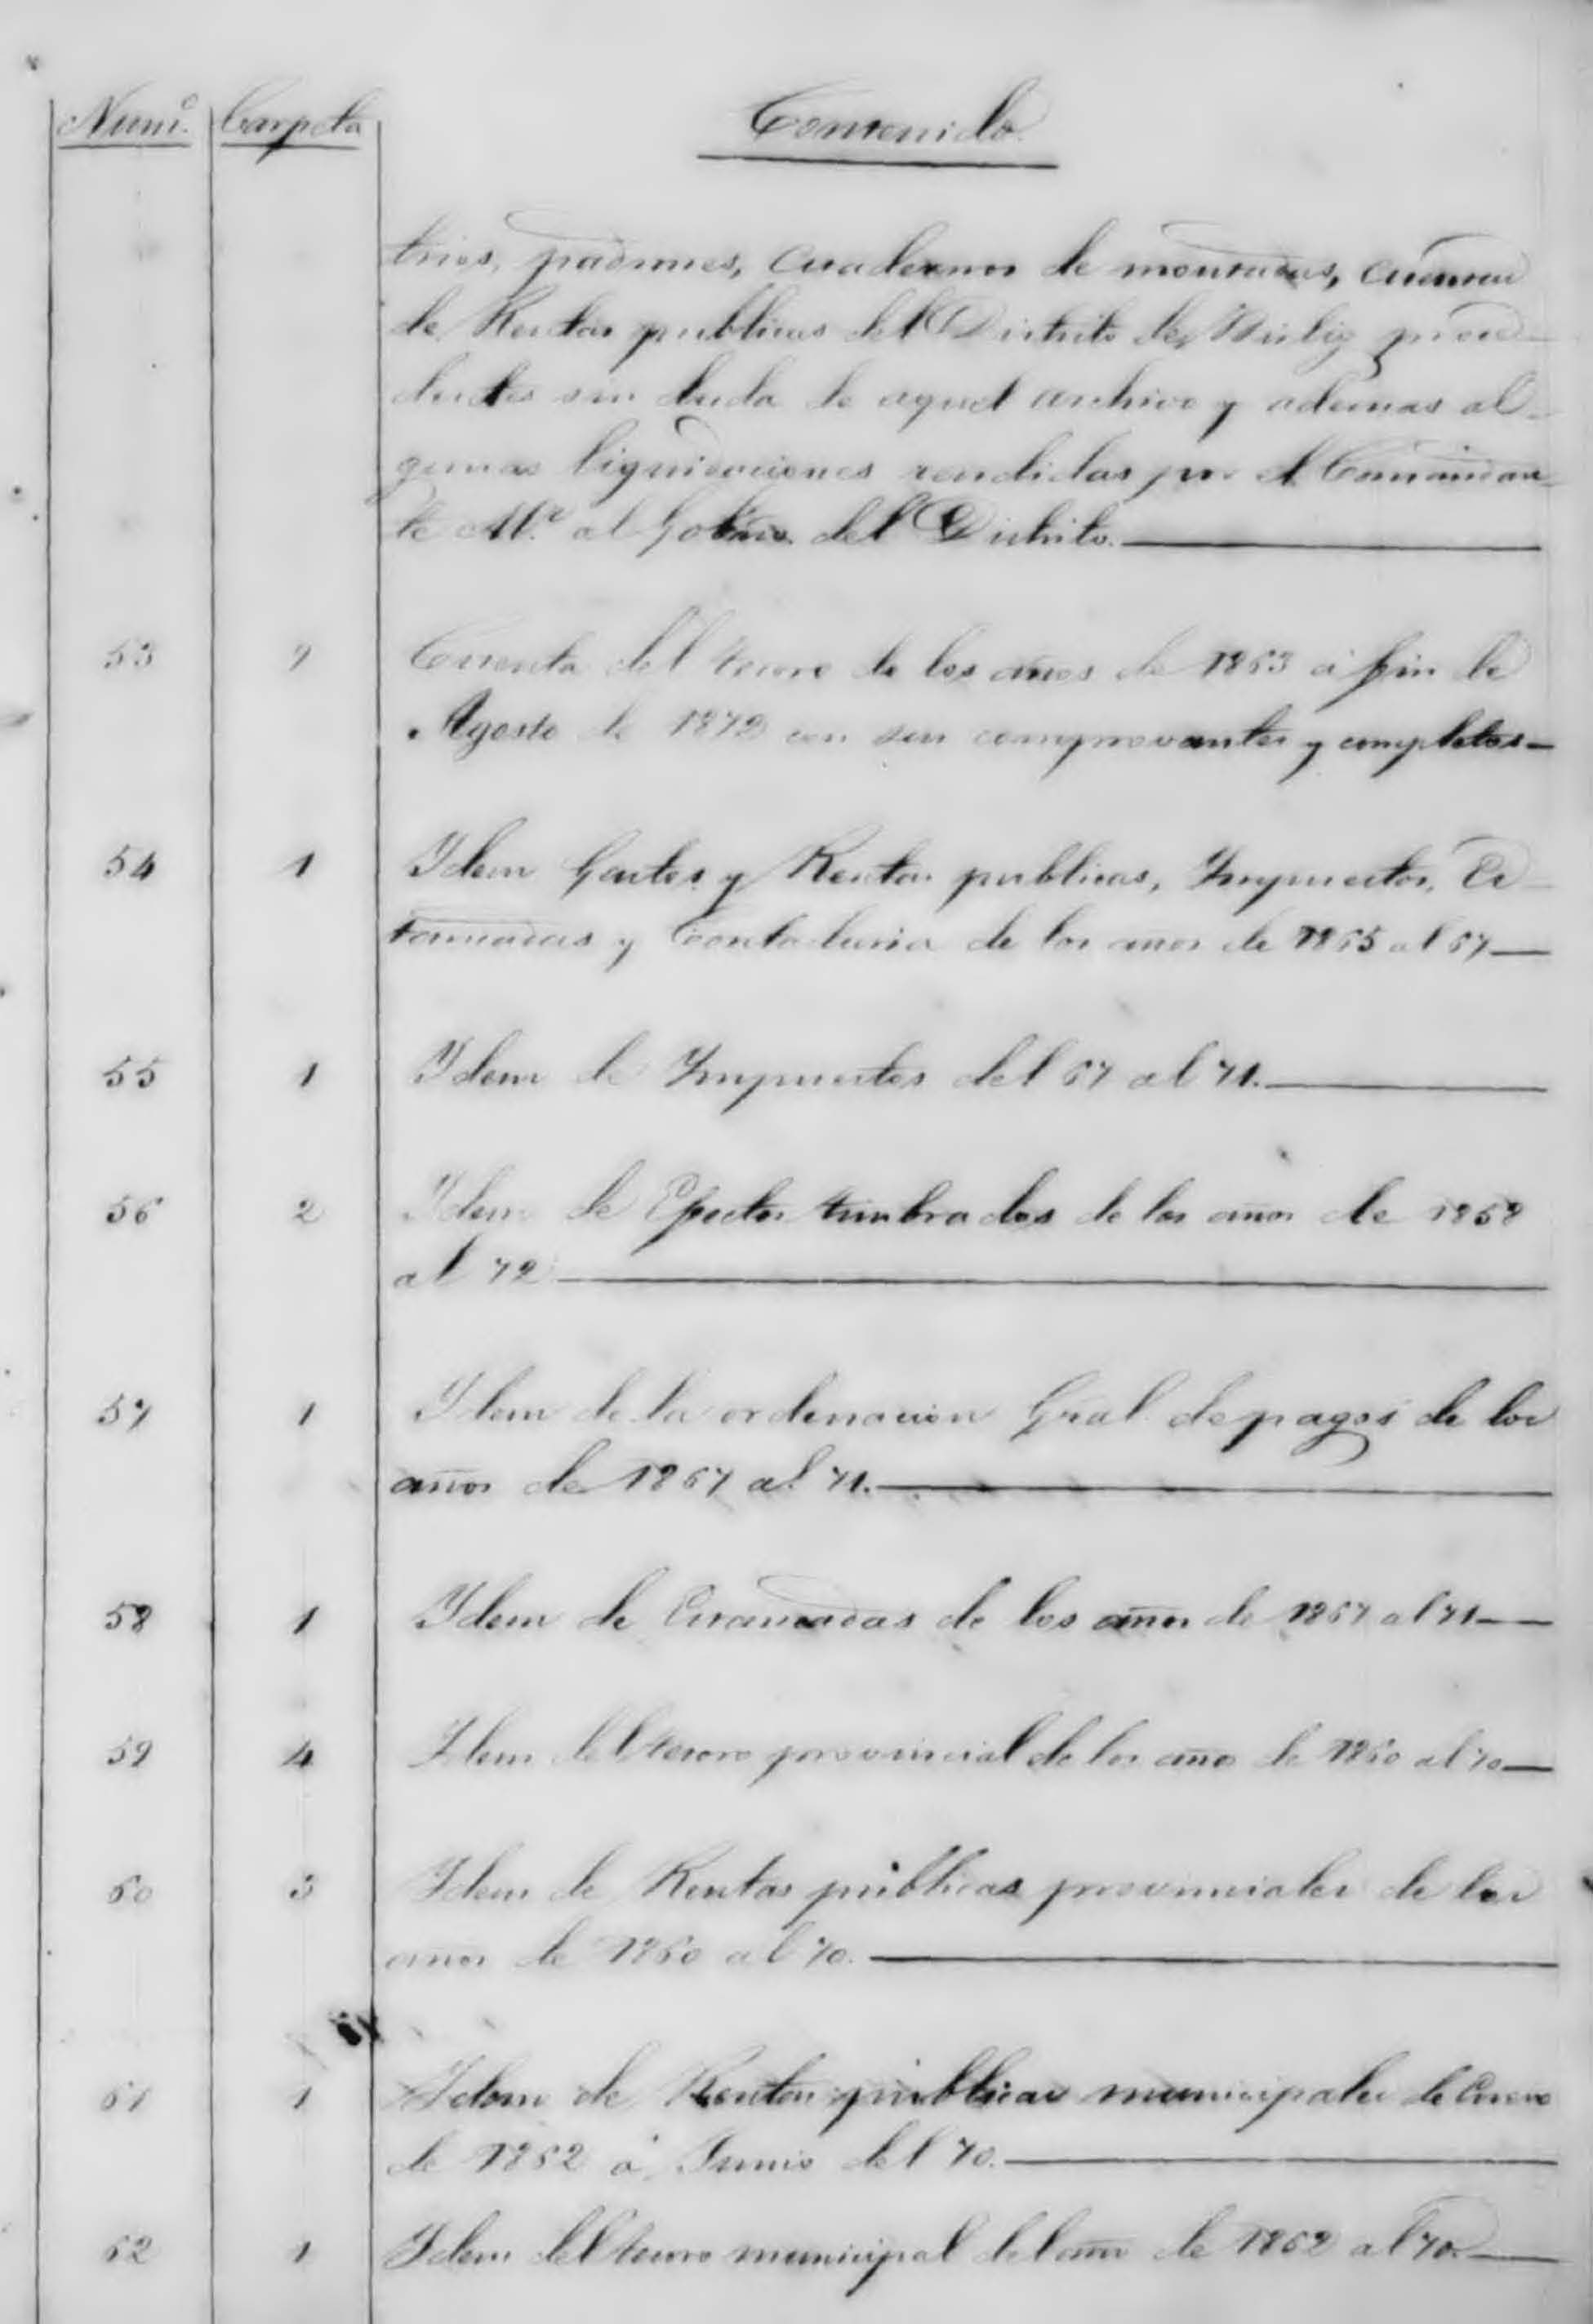 Num.º Carpeta Contenido
trios, padrones, cuadernos de montadas, cuentas
de Rentas publicas del Distrito de proce-
dentes sin duda de aquel archivo y ademas al-
gunas liquidaciones rendidas por el Comandan-
te M.r al Gobno. del Distrito.
53 9 Cuenta del tesoro de los años de 1863 á fin de
Agosto de 1872 con sus comprovantes y completos
54 1 Idem Gastos y Rentas publicas, Impuestos, Es-
tancadas y Contaduria de los años de 1865 al 67
55 1 Idem de Impuestos del 67 al 71.
56 2 Idem de Efectos timbrados de los años de 1858
al 72
57 1 Idem de la ordenacion Gral. de pagos de los
años de 1867 al 71.
58 1 Idem de Estancadas de los años de 1867 al 71
59 4 Idem del tesoro provincial de los años de 1860 al 70
60 3 Idem de Rentas públicas provinciales de los
años de 1860 al 70.
61 1 Idem de Rentas públicas municipales de Enero
de 1862 á Junio del 70.
62 1 Idem del tesoro municipal del año de 1862 al 70.